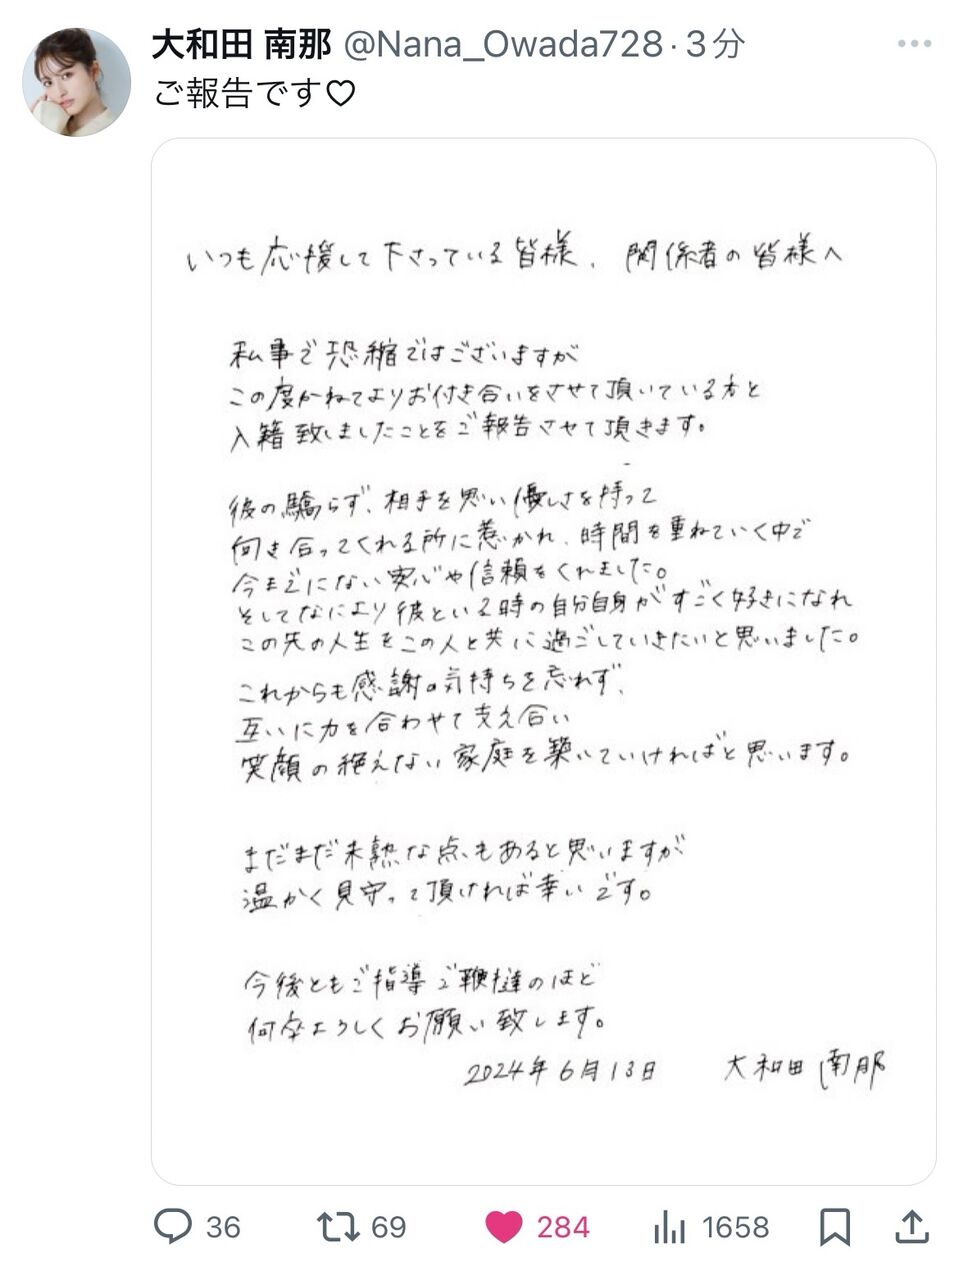 大和田 南那 @Nana_Owada728・3分
ご報告です♡
いつも応援して下さっている皆様、関係者の皆様へ
私事で恐縮ではございますが
この度かねてよりお付き合いをさせて頂いている方と
入籍致しましたことをご報告させて頂きます。
彼の驕らず、相手を思い優しさを持って
向き合ってくれる所に惹かれ、時間を重ねていく中で
今までにない安心や信頼をくれました。
そしてなにより彼といる時の自分自身がすごく好きになれ
この先の人生をこの人と共に過ごしていきたいと思いました。
これからも感謝の気持ちを忘れず、
互いに力を合わせて支え合い
笑顔の絶えない家庭を築いていければと思います。
まだまだ未熟な点もあると思いますが
温かく見守って頂ければ幸いです。
今後ともご指導ご鞭撻のほど
何卒よろしくお願い致します。
2024年6月13日 大和田 南那
36 69 284 1658